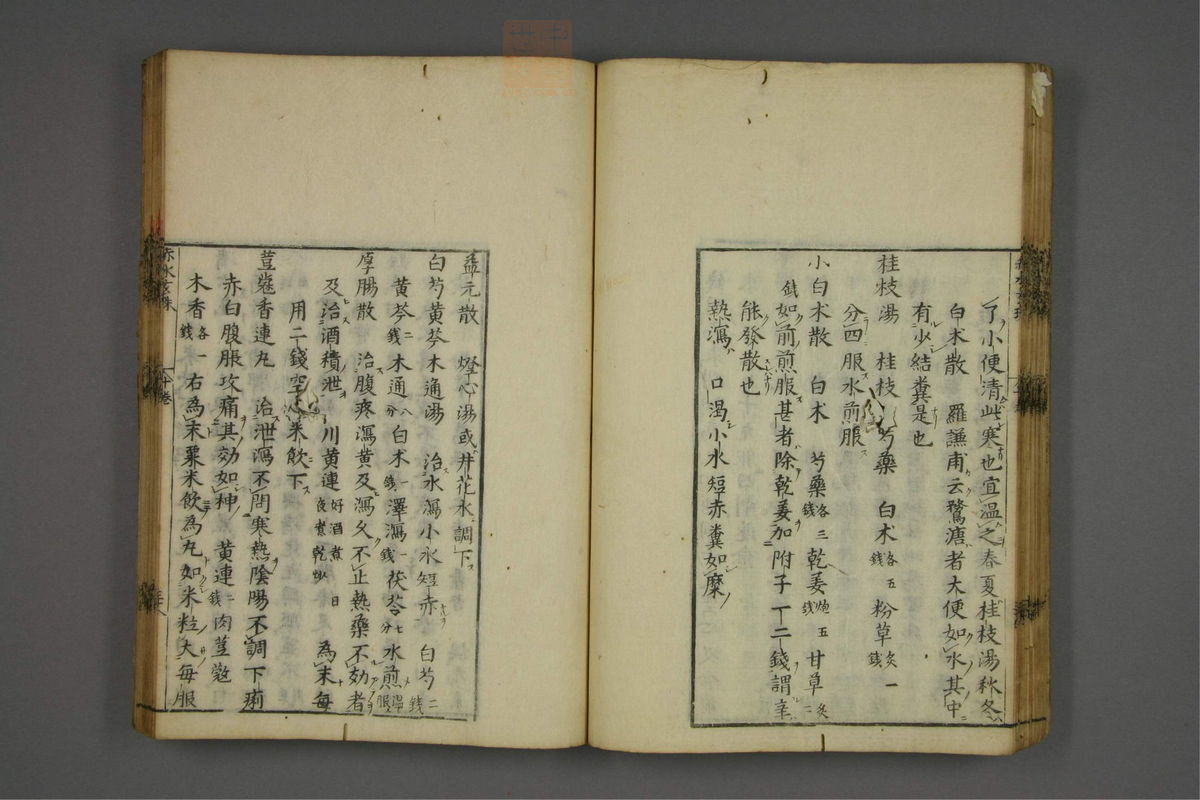 了小便清此寒也宜温之春夏桂枝湯秋冬
白朮散　羅謙甫云鶩溏者大便如水其中
有少結糞是也
桂枝湯　桂枝　芍藥　白朮各五錢　粉草炙一錢
分四服水煎服
小白朮散　白朮　芍藥各三錢　乾姜炮五錢　甘草炙二
錢如前煎服甚者除乾姜加附子丁二錢謂辛
能發散也
熱瀉　口渴小水短赤糞如糜
益元散　燈心湯或井花水調下
白芍黃芩木通湯　治水瀉小水短赤　白芍二錢
黃芩二錢木通八分白朮一錢澤瀉一錢茯苓七分水煎温服
厚腸散　治腹疼瀉黃及瀉久不止熱藥不効者
及治酒積泄　川黃連好酒煮　日夜煮乾　為末每
用二錢空心米飲下
荳蔻香連丸　治泄瀉不問寒熱陰陽不調下痢
赤白腹脹攻痛其効如神　黃連二錢肉荳蔻
木香各一錢右為末粟米飲為丸如米粒大每服
赤水玄珠
八卷